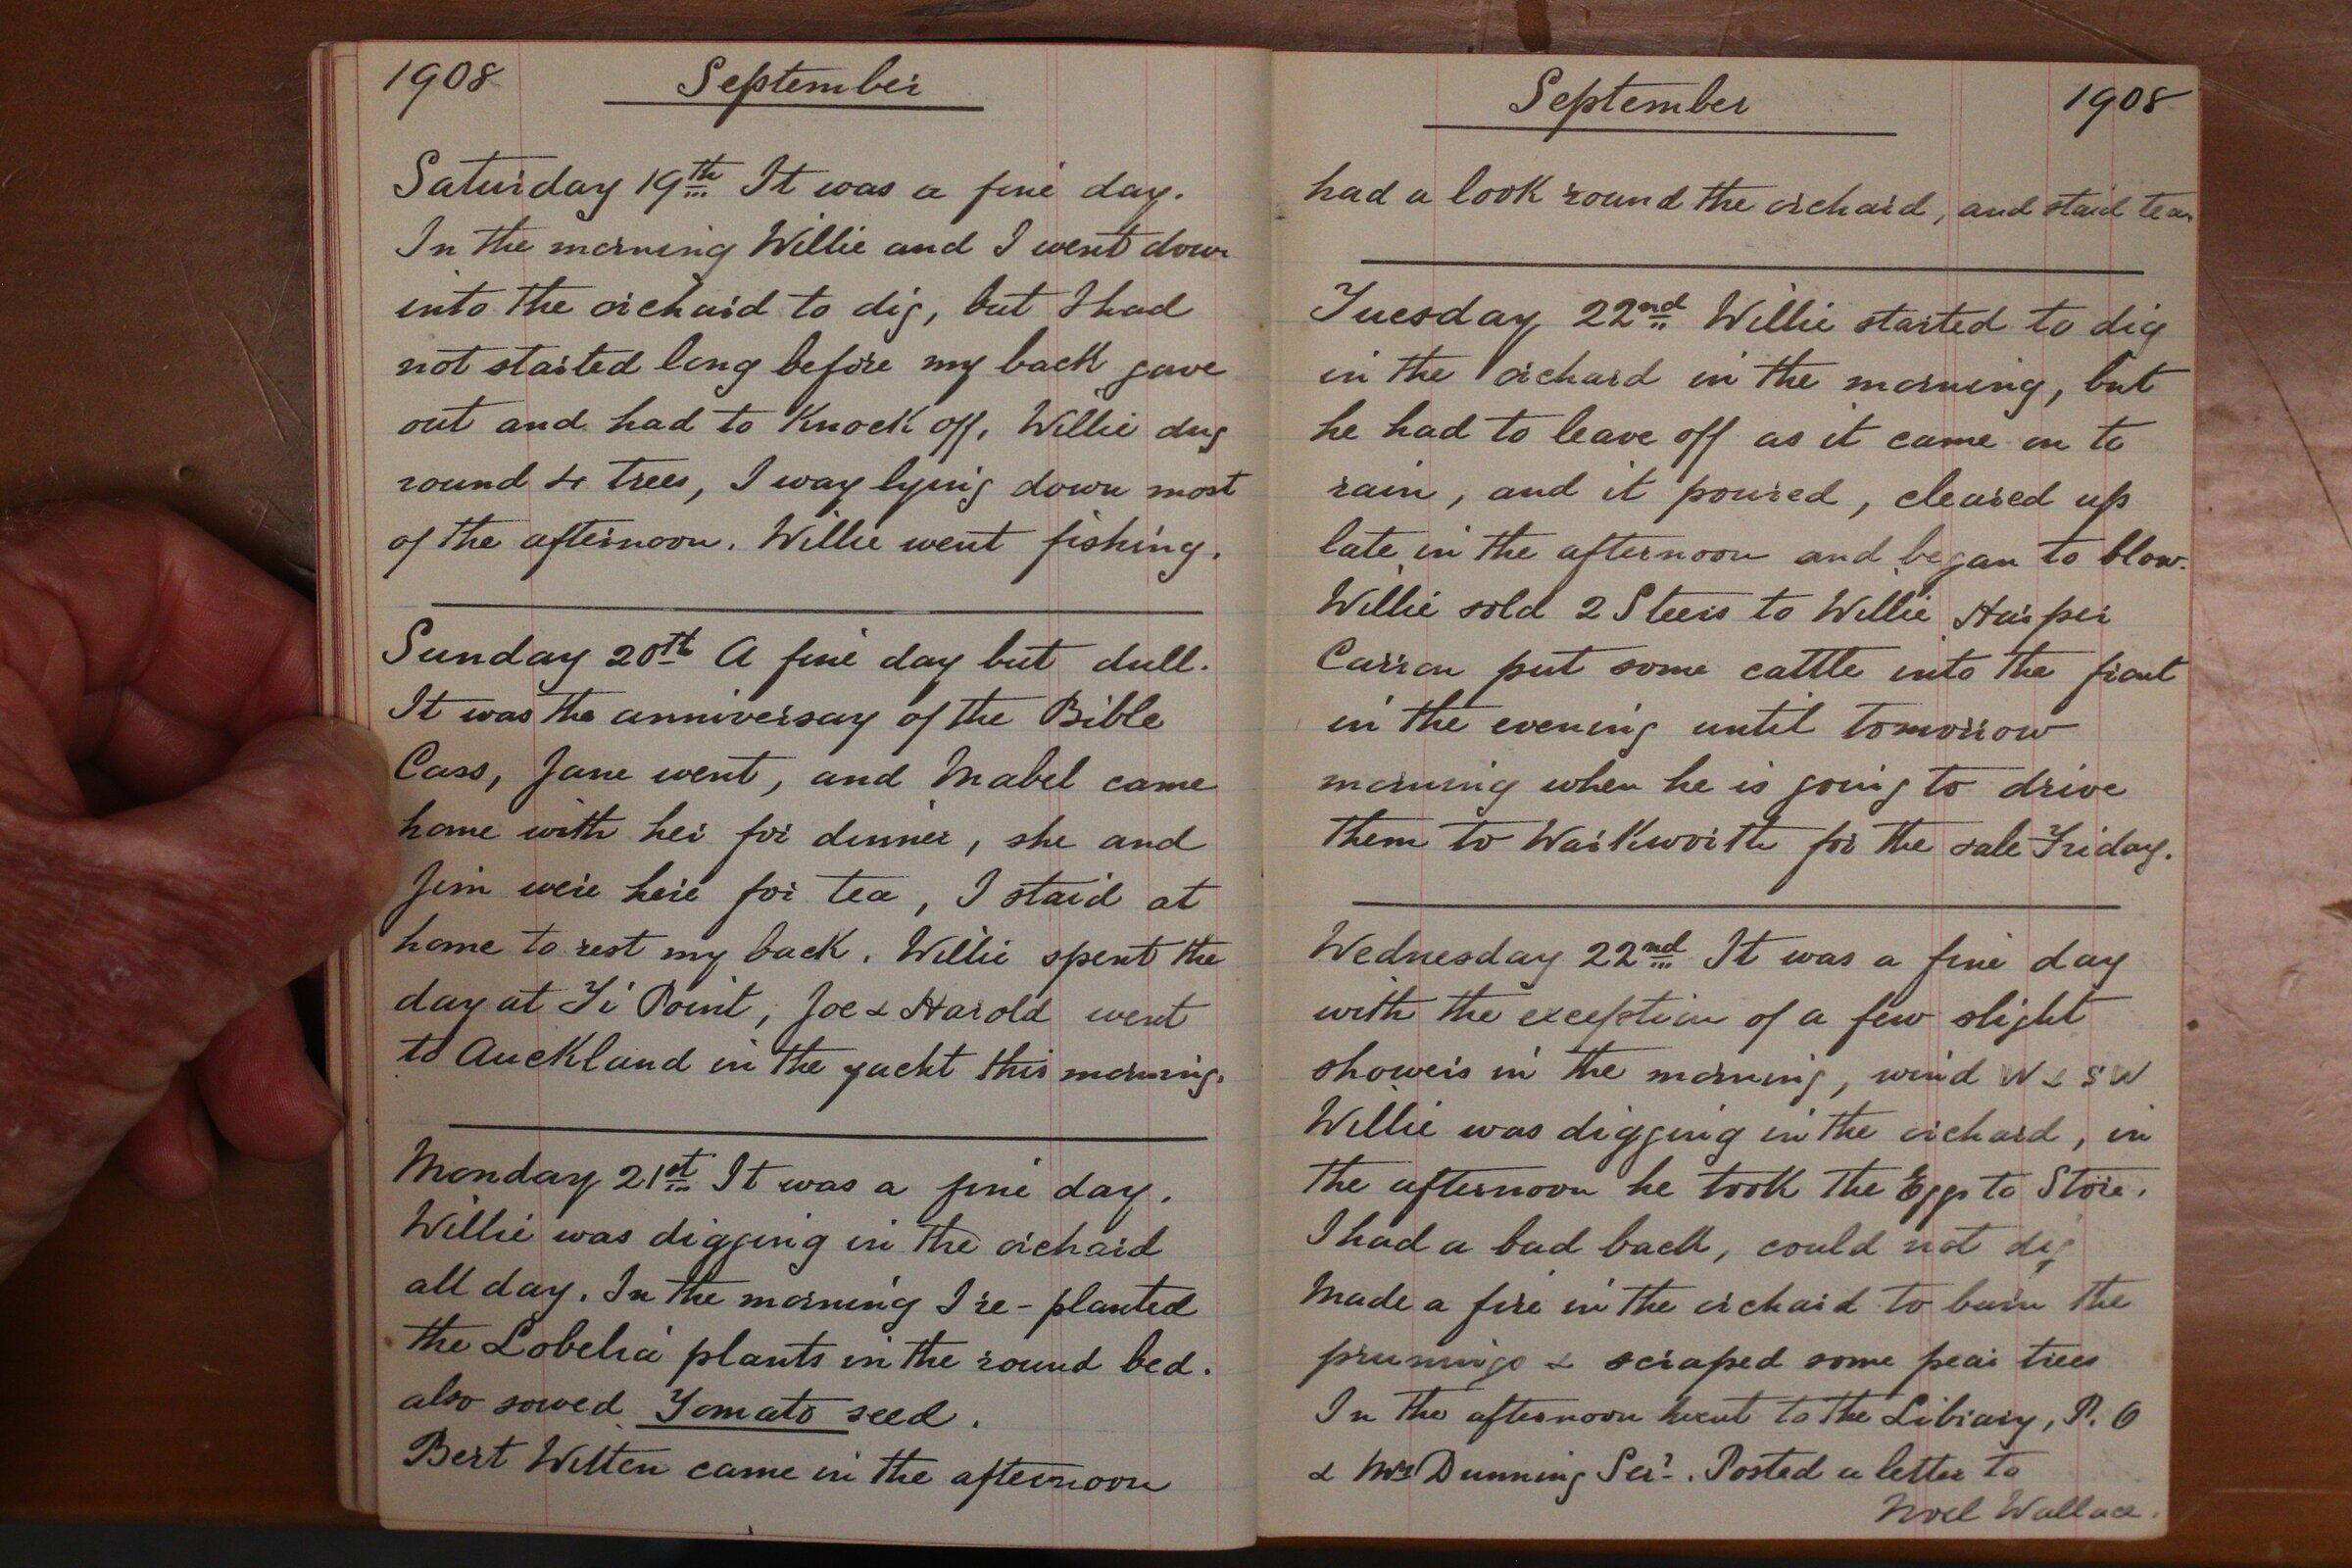 1908 September
Saturday 19th It was a fine day.
In the morning Willie and I went down
into the orchard to dig, but I had
not started long before my back gave
out and had to Knock off, Willie dug
round 4 trees, I way lying down most
of the afternoon. Willie went fishing.
Sunday 20th A fine day but dull.
It was the anniversay of the Bible
Cass, Jane went, and Mabel came
home with her for dinner, she and
Jim were here for tea, I staid at
home to rest my back. Willie spent the
day at Ti Point, Joe & Harold went
to Auckland in the yacht this morning.
Monday 21st It was a fine day.
Willie was digging in the orchard
all day. In the morning I re-planted
the Lobelia plants in the round bed.
also sowed Tomato seed.
Bert Witten came in the afternoon
September 1908
had a look round the orchard, and staid tea
Tuesday 22nd Willie started to dig
in the orchard in the morning, but
he had to leave off as it came on to
rain, and it poured, cleared up
late in the afternoon and began to blow.
Willie sold 2 Steers to Willie Harper
Curran put some cattle into the front
in the evening until tomorrow
morning when he is going to drive
them to Warkworth for the sale Friday.
Wednesday 22nd It was a fine day
with the exception of a few slight
showers in the morning, wind W & SW
Willie was digging in the orchard, in
the afternoon he took the Eggs to Store.
I had a bad back, could not dig
Made a fire in the orchard to burn the
prunnings & scraped some pear trees
In the afternoon went to the Library, P. O
& Mrs Dunning Senr. Posted a letter to
Noel Wallace.